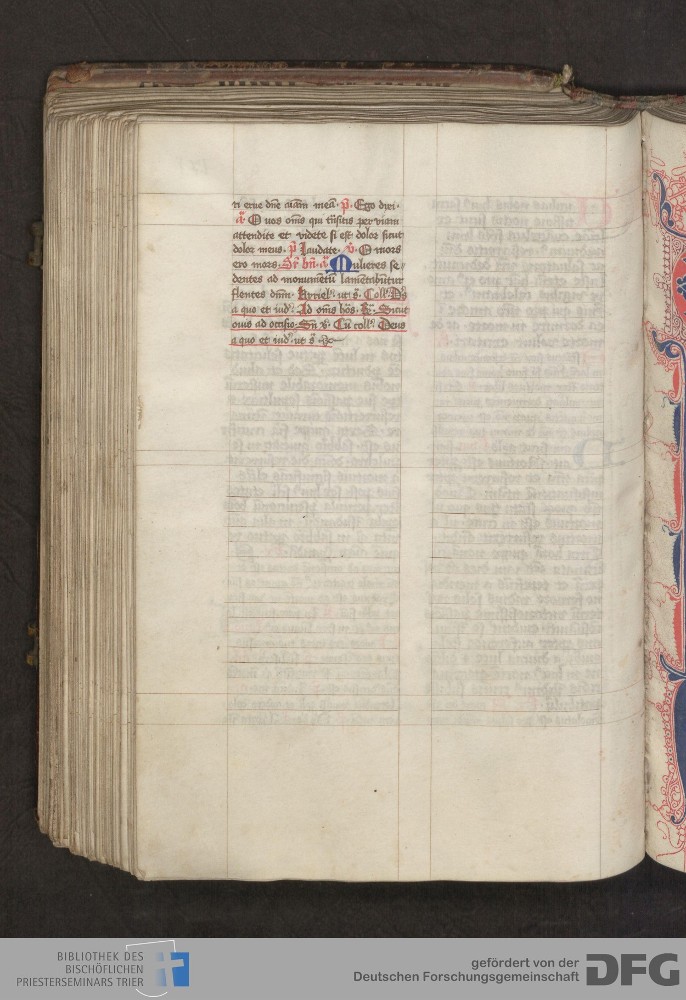 ti erue dn̄e aīam meā· p̄· Ego dixi·
a᷃· O uos om̄s qui tn̄sitis per viam
attendite et videte si est dolor sicut
dolor meus· p̄· Laudate· v̄· O mors
ero mors· Sr̄ bn̄· a᷃· Mulieres se//
dentes ad monumētū lamētabātur
flentes dn̄m· Kyriel᷒· ut s̄· Coll᷒· Ds̄
a quo et iud᷒· Ad om̄s ho᷒s· R̄· Sicut
ouis ad occisio· Cū coll᷒· Deus
a quo et iud᷒ ut s̄·
BIBLIOTHEK DES
BISCHÖFLICHEN
PRIESTERSEMINARS TRIER
gefördert von der
Deutschen Forschungsgemeinschaft
DFG